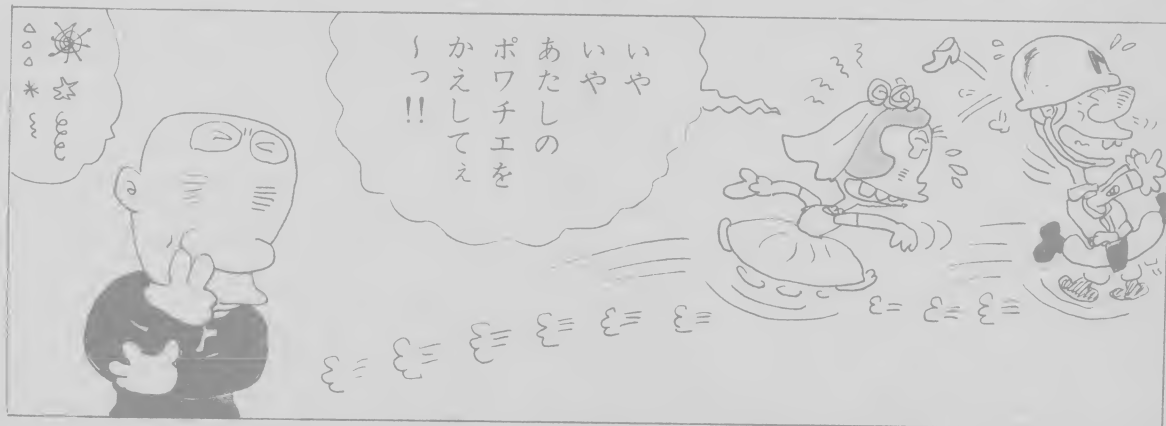 いや
いや
あたしの
ポワチエを
かえしてぇ
〜っ!!